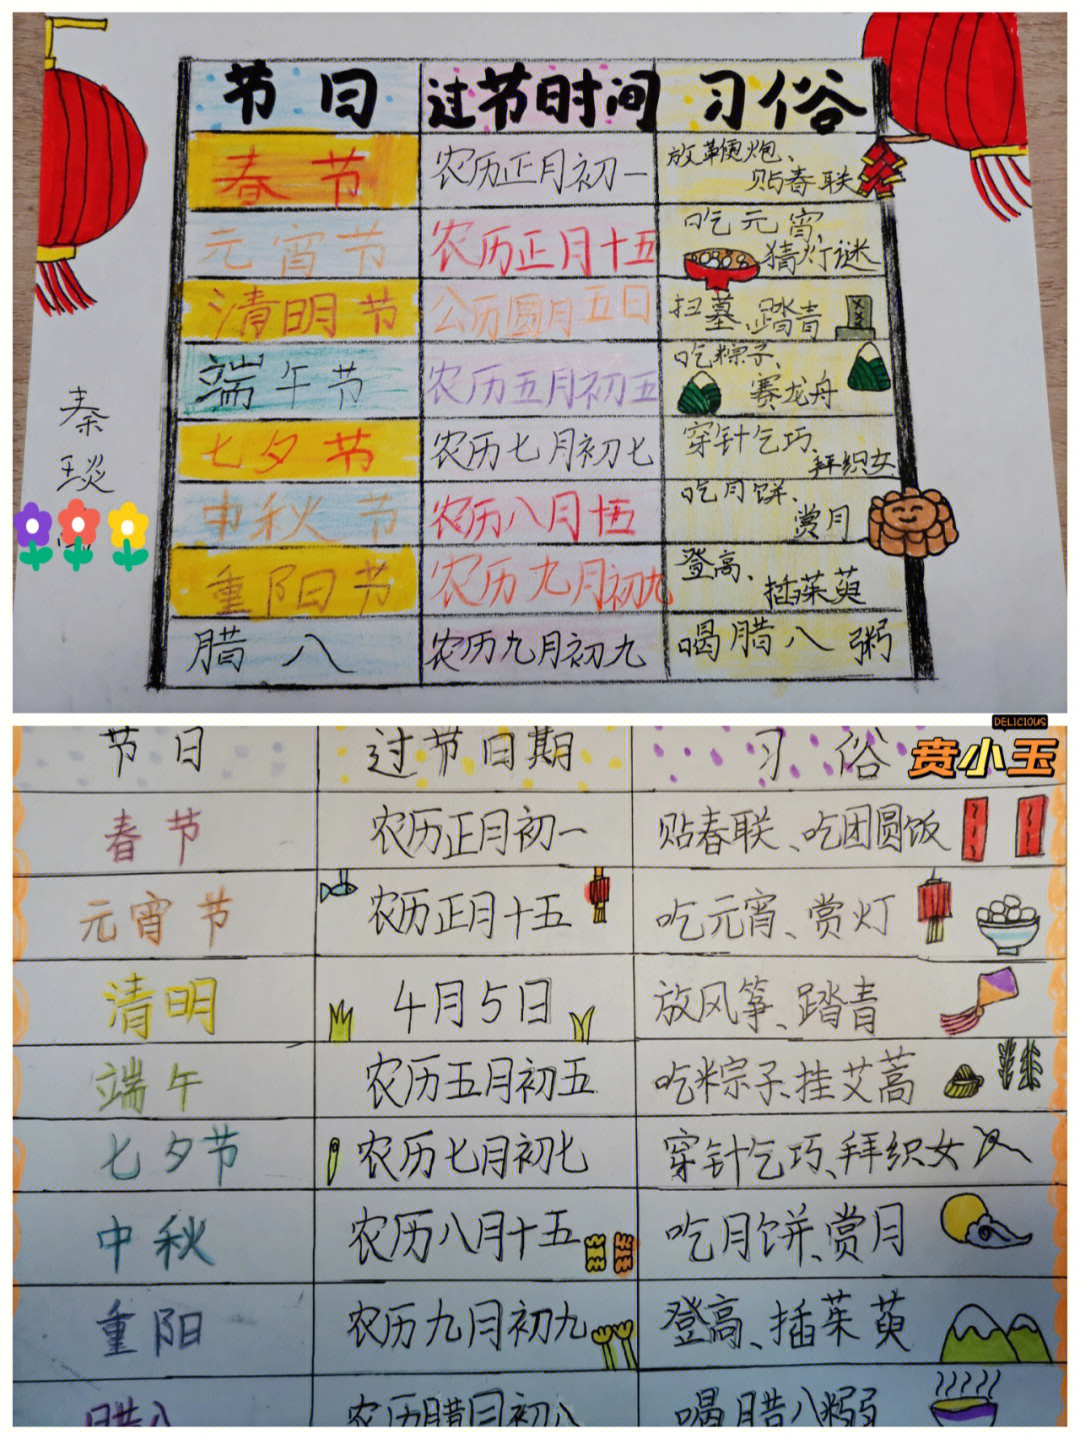 节日 过节时间 习俗
春节 农历正月初一 放鞭炮、
贴春联
元宵节 农历正月十五 吃元宵,
猜灯谜
清明节 公历圆月五日 扫墓、踏青
端午节 农历五月初五 吃粽子、
赛龙舟
七夕节 农历七月初七 穿针乞巧、
拜织女
中秋节 农历八月十五 吃月饼、
赏月
重阳节 农历九月初九 登高、
插茱萸
腊八 农历九月初九 喝腊八粥
秦
琰
DELICIOUS
贲小玉
节日 过节日期 习俗
春节 农历正月初一 贴春联、吃团圆饭
元宵节 农历正月十五 吃元宵、赏灯
清明 4月5日 放风筝、踏青
端午 农历五月初五 吃粽子、挂艾蒿
七夕节 农历七月初七 穿针乞巧、拜织女
中秋 农历八月十五 吃月饼、赏月
重阳 农历九月初九 登高、插茱萸
腊八 农历腊月初八 喝腊八粥